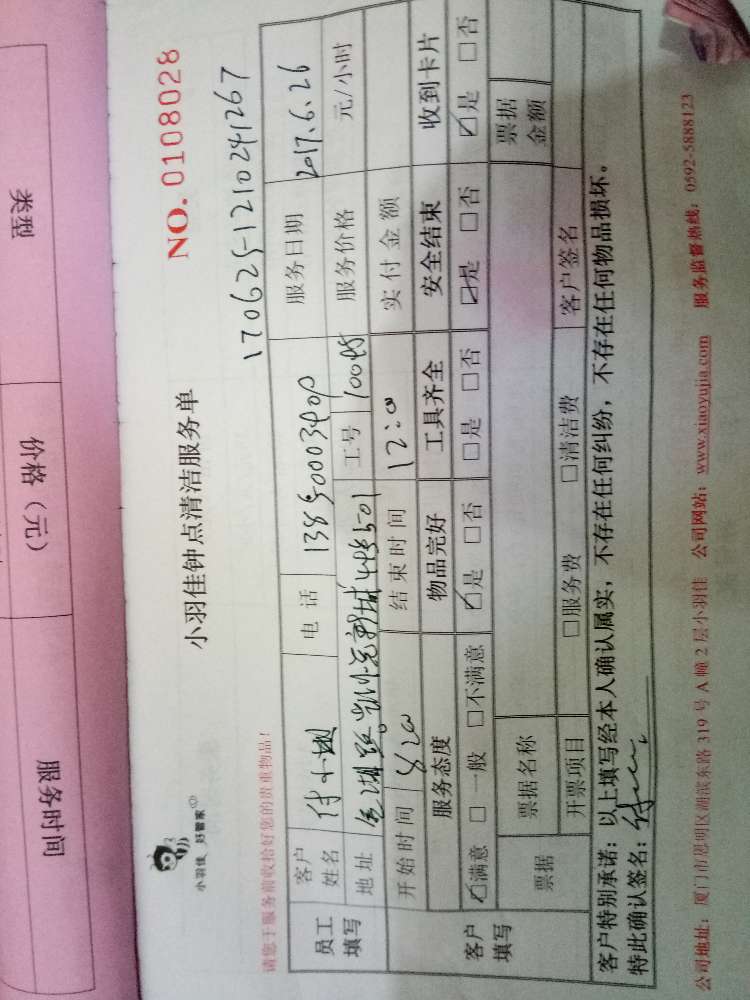 类型
价格（元）
服务时间
NO. 0108028
170625-1210241267
小羽佳钟点清洁服务单
小羽佳 好管家
请您于服务前收拾好您的贵重物品！
员工填写
客户姓名
电话
服务日期 2017.6.26
地址
工号
服务价格 元/小时
开始时间
结束时间 12:00
实付金额
客户填写
服务态度 物品完好 工具齐全 安全结束 收到卡片
☑满意 □一般 □不满意 ☑是 □否 □是 □否 ☑是 □否 ☑是 □否
票据 票据名称 票据金额
开票项目 □服务费 □清洁费 客户签名
客户特别承诺：以上填写经本人确认属实，不存在任何纠纷，不存在任何物品损坏。
特此确认签名：
公司地址：厦门市思明区湖滨东路 319 号 A 幢 2 层小羽佳 公司网站：www.xiaoyujia.com 服务监督热线：0592-5888123